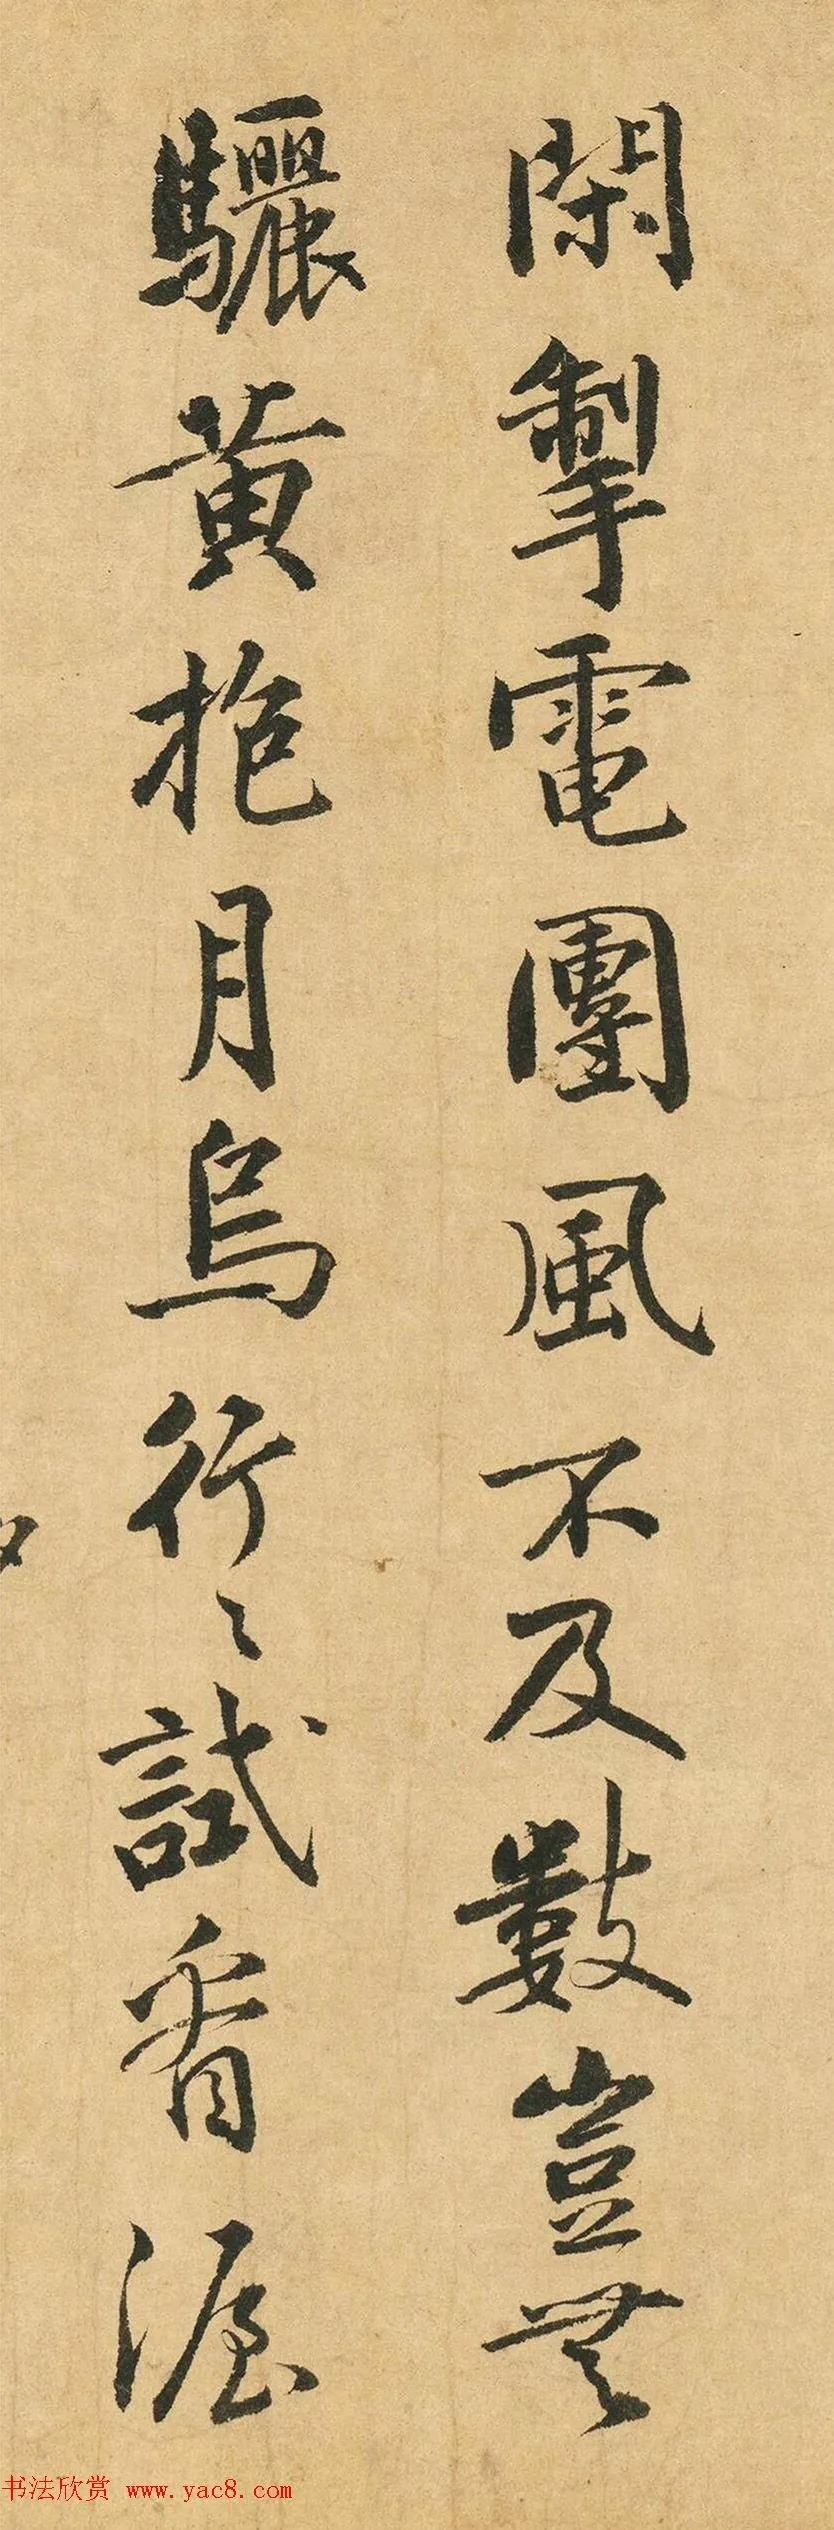 閑掣電團風不及數豈無
驪黄抱月烏行〻試看渥
书法欣赏 www.yac8.com